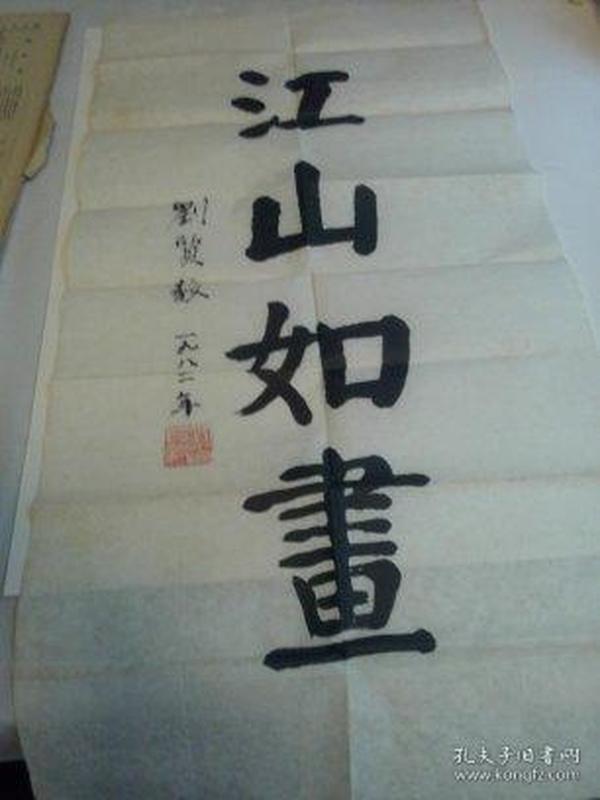 江山如畫
劉賢敏 一九八二年
孔夫子旧书网
www.kongfz.com